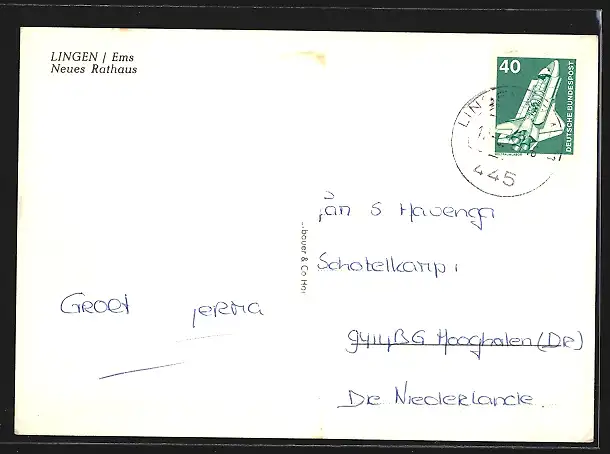 LINGEN / Ems
Neues Rathaus
40
DEUTSCHE BUNDESPOST
LIN
445
Jan S Havenga
bauer & Co Ha
Schotelkamp 1
Groet jerma
9414BG Hooghalen (DR)
Die Niederlande.